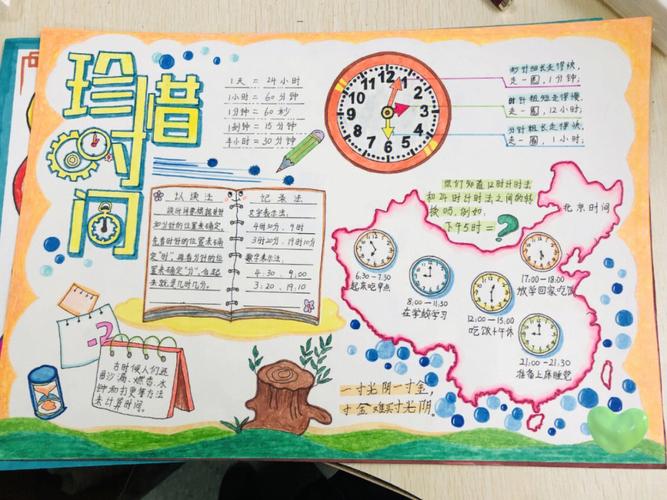 珍惜时间
1天 = 24小时
1小时 = 60分钟
1分钟 = 60秒
1刻钟 = 15分钟
半小时 = 30分钟
12
1
2
3
4
5
6
7
8
9
10
11
秒针细长走得快,
走一圈,1分钟;
时针粗短走得慢,
走一圈,12小时;
分针粗长走得快,
走一圈,1小时;
认读法
读时间要根据时针
和分针的位置来确定,
先看时针的位置来确定
“时”,再看分针的位
置来确定“分”,合起
来就是几时几分。
记表法
文字表示法:
4时30分,9时
3时20分,19时10分
数字表示法:
4:30,9:00
3:20,19:10
我们知道12时计时法
和24时计时法之间的转
换吗,例如,
下午5时=?
北京时间
6:30-7:30
起床吃早点
8:00-11:30
在学校学习
12:00-15:00
吃饭午休
17:00-18:00
放学回家吃饭
21:00-21:30
准备上床睡觉
-?
古时候人们还
用沙漏、燃香、水
钟和打更等方法
去计算时间。
一寸光阴一寸金,
寸金难买寸光阴。